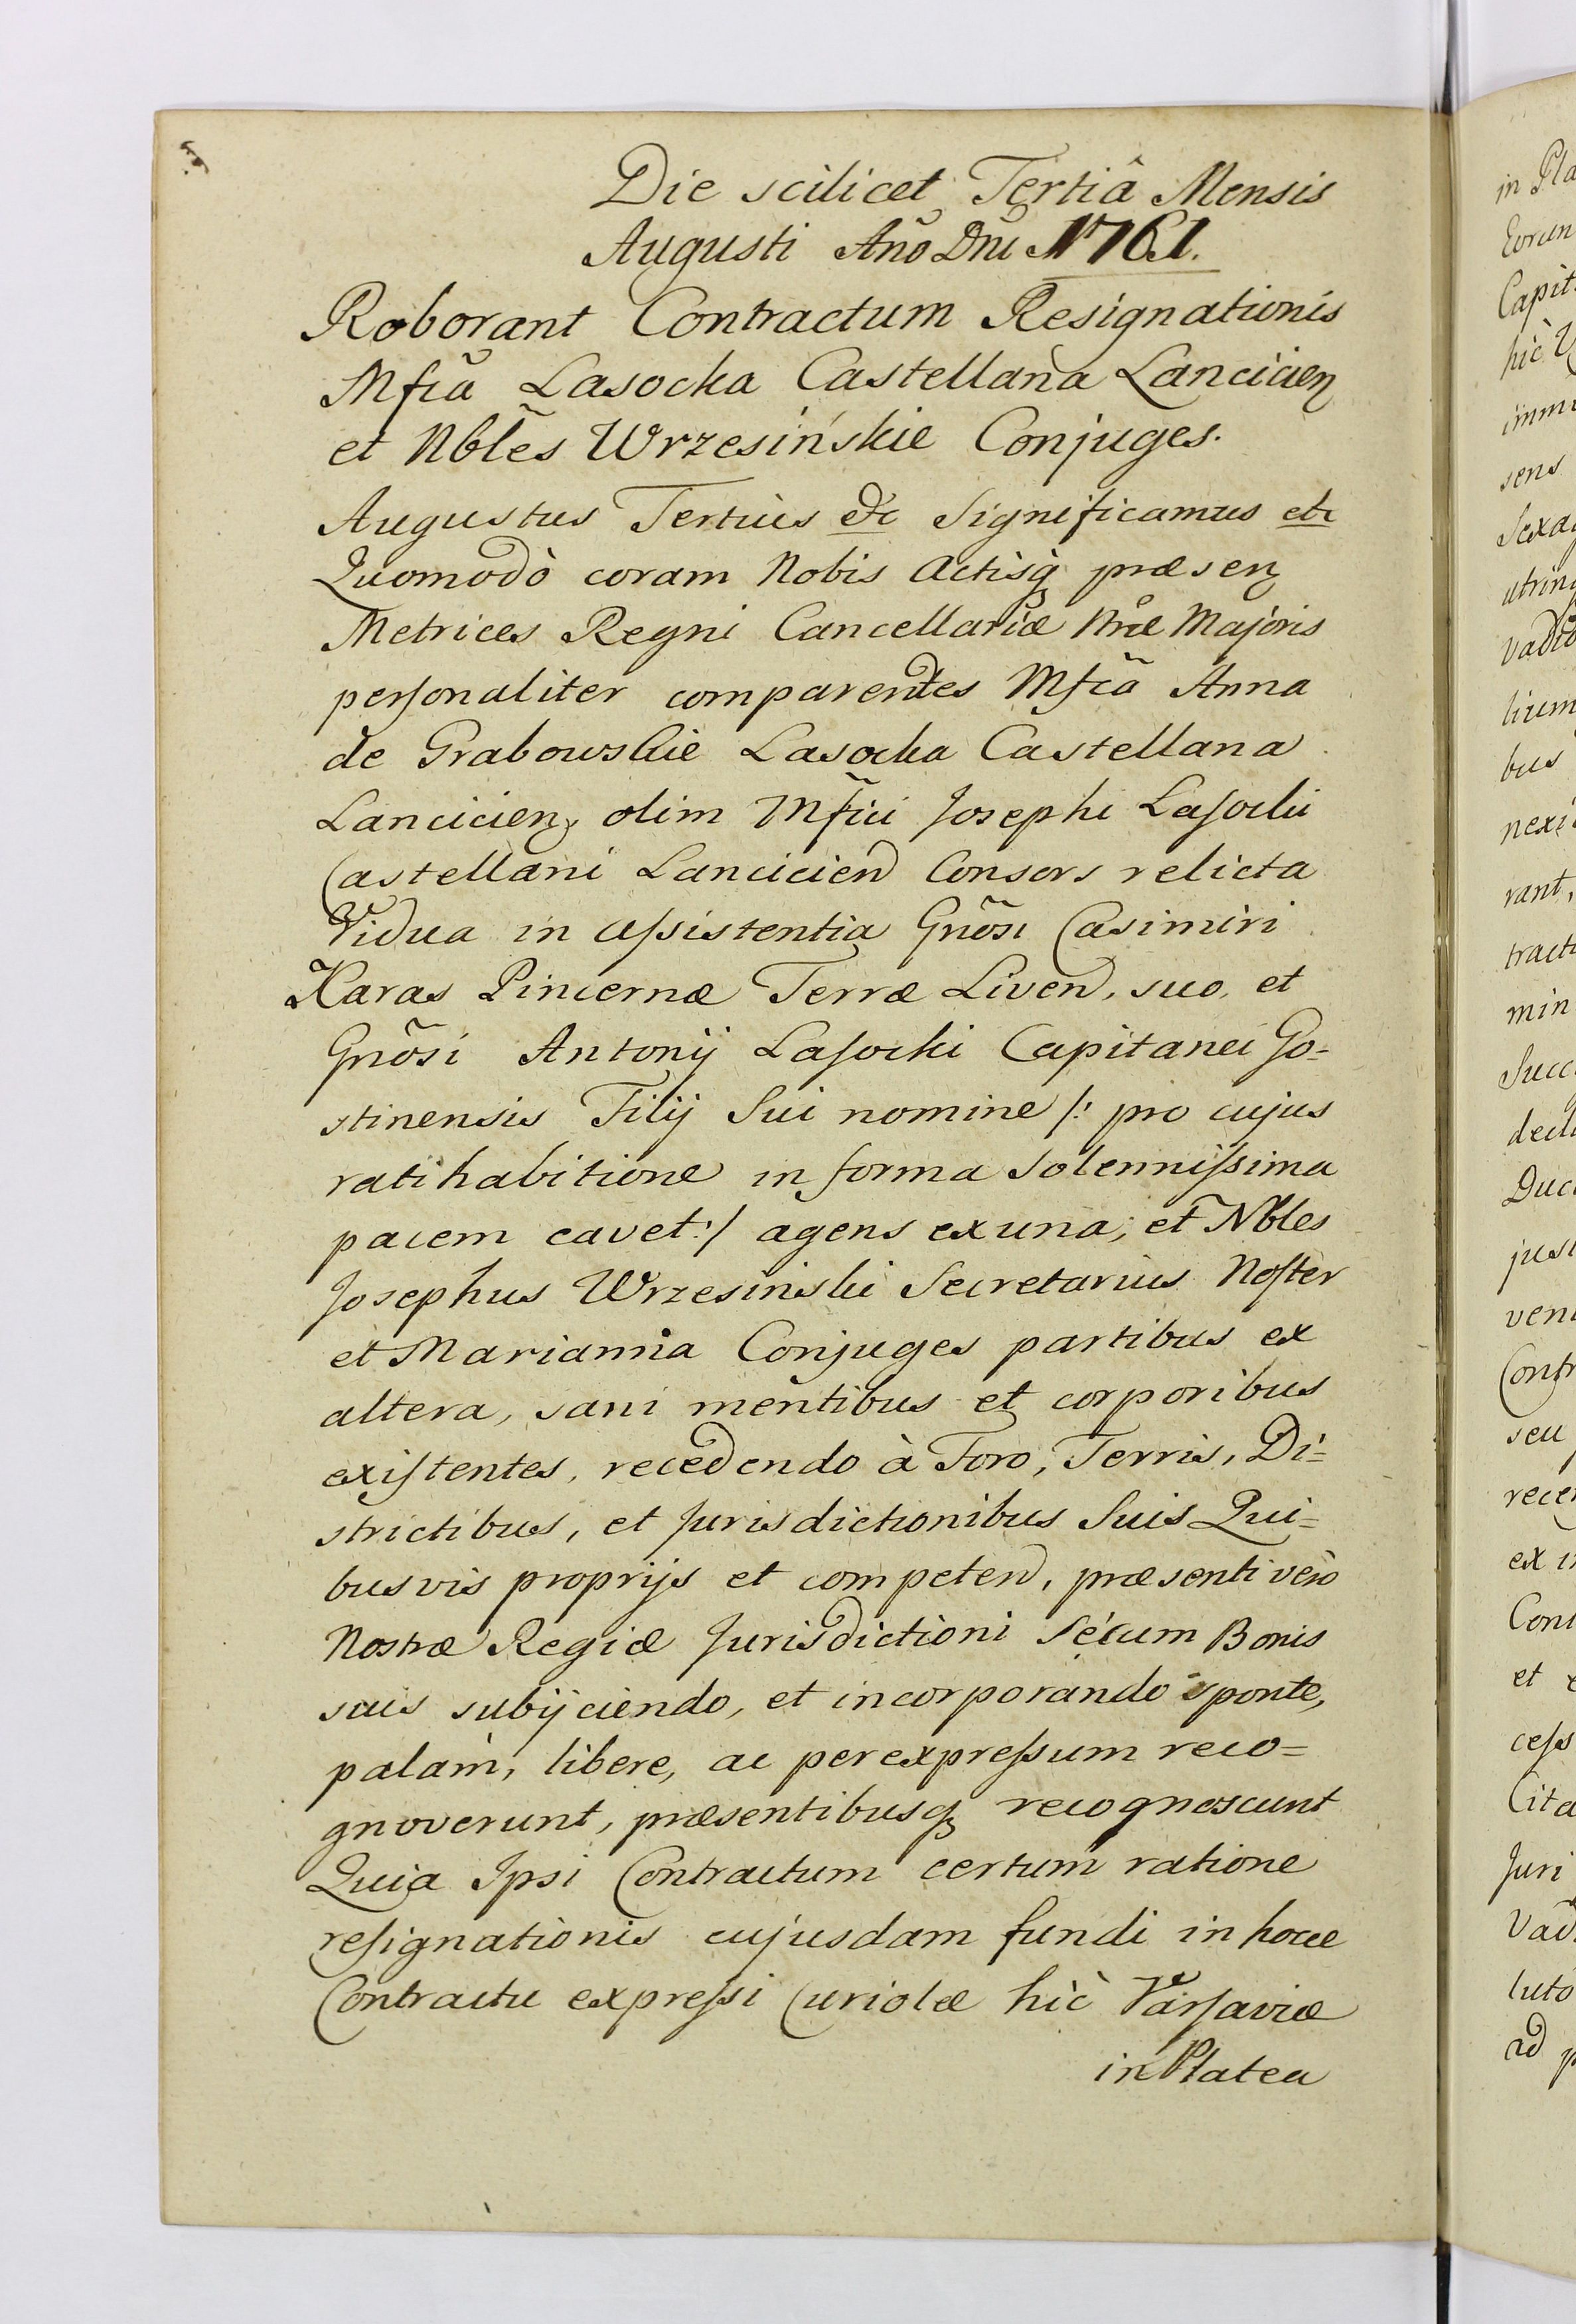 Die scilicet Tertiâ Mensis
Augusti Año Dni 1761.
Roborant Contractum Resignationis
Mfca Lasocka Castellana Lancicien
et Nbles Wrzesińskie Conjuges.
Augustus Tertius &c Significamus etc
Quomodò coram Nobis Actisq præsen
Metrices Regni Cancellariæ Nræ Majoris
personaliter comparentes Mfca Anna
de Grabowskie Lasocka Castellana
Lancicien, olim Mfici Josephi Lasocki
Castellani Lancicien Consors relicta
Vidua in assistentia Gnosi Casimiri
Karas Pincernæ Terræ Liven, suo, et
Gnosi Antonij Lasocki Capitanei Go-
stinensis Filij Sui nomine /: pro cujus
ratihabitione in forma solennissima
pacem cavet :/ agens ex una, et Nbles
Josephus Wrzesinski Secretarius Noster
et Marianna Conjuges partibus ex
altera, sani mentibus et corporibus
existentes, recedendo à Foro, Terris, Di=
strictibus, et Jurisdictionibus Suis Qui=
busvis proprijs et competen, præsenti vero
Nostræ Regiæ Jurisdictioni Sécum Bonis
suis subijciendo, et incorporando sponte,
palam, libere, ac per expressum reco=
gnoverunt, præsentibusq recognoscunt
Quia Ipsi Contractum certum ratione
resignationis cujusdam fundi in hocce
Contractu expressi Curiolæ hìc Varsaviæ
in Platea
in Pla
Eorun
Capit
hìc
sens
Sexag
utrinq
Vadio
lium
bus
nexi
rant,
tract
min
Succ
decl
Duc
jus
ven
Contr
seu
recen
ex i
Con
et
cess
Cita
Juri
Vad
luto
ad p